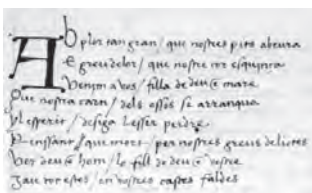 Ab plor tan gran / que nostres pits abeura
E greu dolor / que nostre cor esquinça
Venim a vos / filla de deu e mare
Que nostra carn / dels ossos se arranqua
Y l esperit / desija l esser perdre
Penssant / que mort / per nostres greus delictes
Ver deu e hom / lo fill de deu e vostre
Jau tot estes / en vostres castes faldes